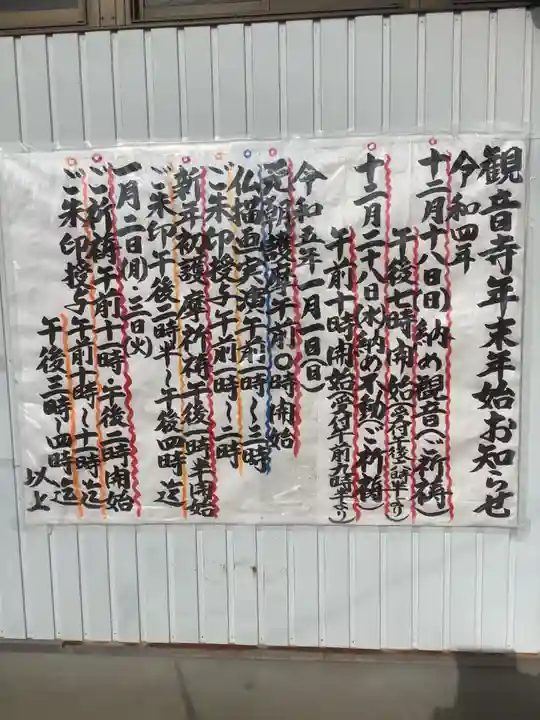 観音寺年末年始お知らせ
令和四年
十二月十八日(日)納め観音(ご祈祷)
午後七時開始(受付午後六時半より)
十二月二十八日(水)納め不動(ご祈祷)
午前十時開始(受付午前九時半より)
令和五年一月一日(日)
元朝護摩午前〇時開始
仏描画実演午前一時〜三時
ご朱印授与午前一時〜二時
新年初護摩祈祷午後一時半開始
ご朱印午後二時半〜午後四時迄
一月二日(月)・三日(火)
ご祈祷午前十時・午後二時開始
ご朱印授与午前十時〜十一時迄
午後三時〜四時迄
以上